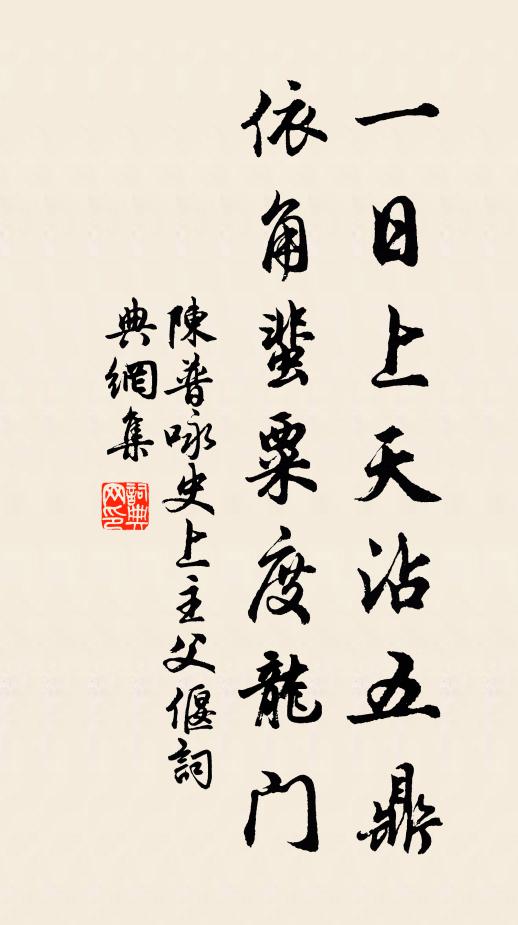 一日上天沾五鼎
依角蜚粟度龍门
陳普咏史上主父偃詞
典網集
詞典網印